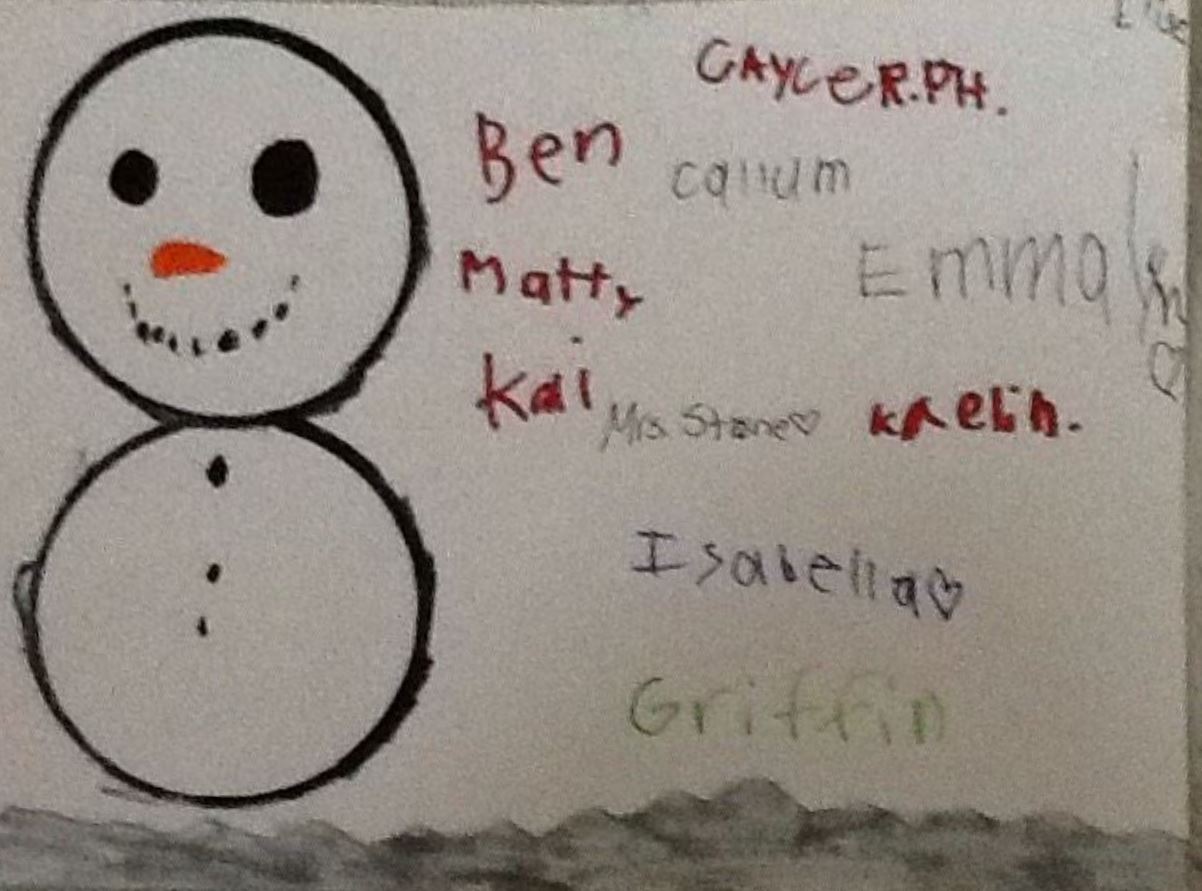 GAYCER.PH.
Ben
callum
Matty
Emma
Kai
Mrs. Stone♡
KAelin.
Isabella♡
Griffin